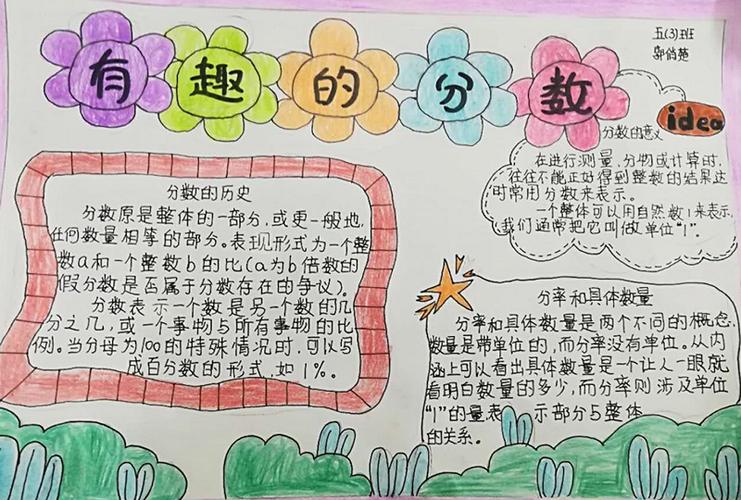 有趣的分数
五(3)班
idea
分数的意义
在进行测量,分物或计算时,
往往不能正好得到整数的结果达
时常用分数来表示。
一个整体可以用自然数1来表示,
我们通常把它叫做单位"1".
分数的历史
分数原是整体的一部分,或更一般地,
任何数量相等的部分。表现形式为一个整
数a和一个整数b的比(a为b倍数的
假分数是否属于分数存在的争议)。
分数表示一个数是另一个数的几
分之几,或一个事物与所有事物的比
例。当分母为100的特殊情况时,可以写
成百分数的形式,如1%。
分率和具体数量
分率和具体数量是两个不同的概念,
数量是带单位的,而分率没有单位。从内
涵上可以看出具体数量是一个让人一眼就
看明白数量的多少,而分率则涉及单位
"1"的量表 示部分与整体
的关系。